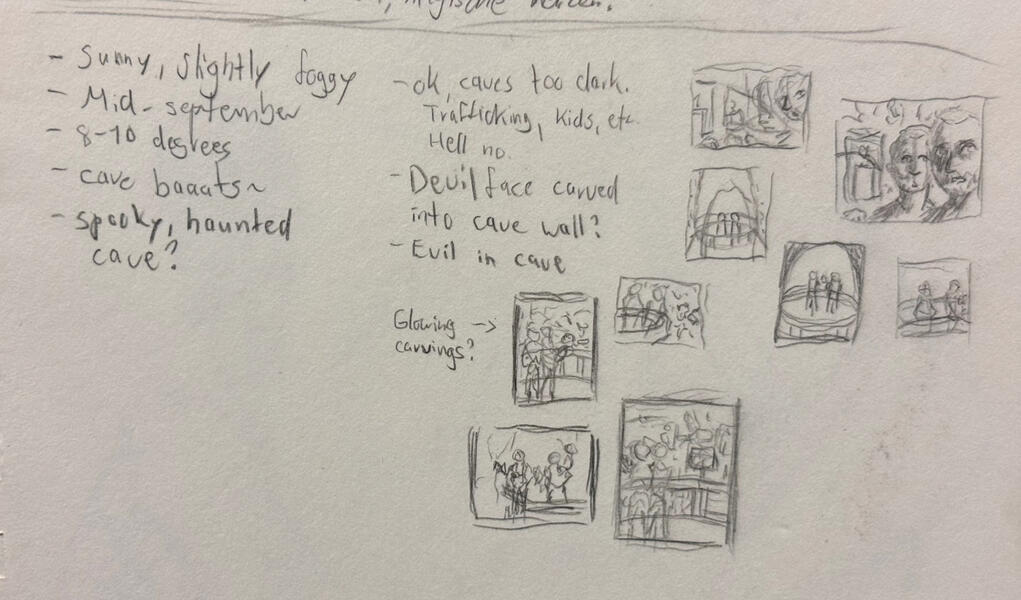 magische
- Sunny, slightly foggy
- Mid-september
- 8-10 degrees
- cave baaats~
- spooky, haunted
cave?
- ok, caves too dark.
Trafficking, kids, etc.
Hell no.
- Devil face carved
into cave wall?
- Evil in cave
Glowing →
carvings?